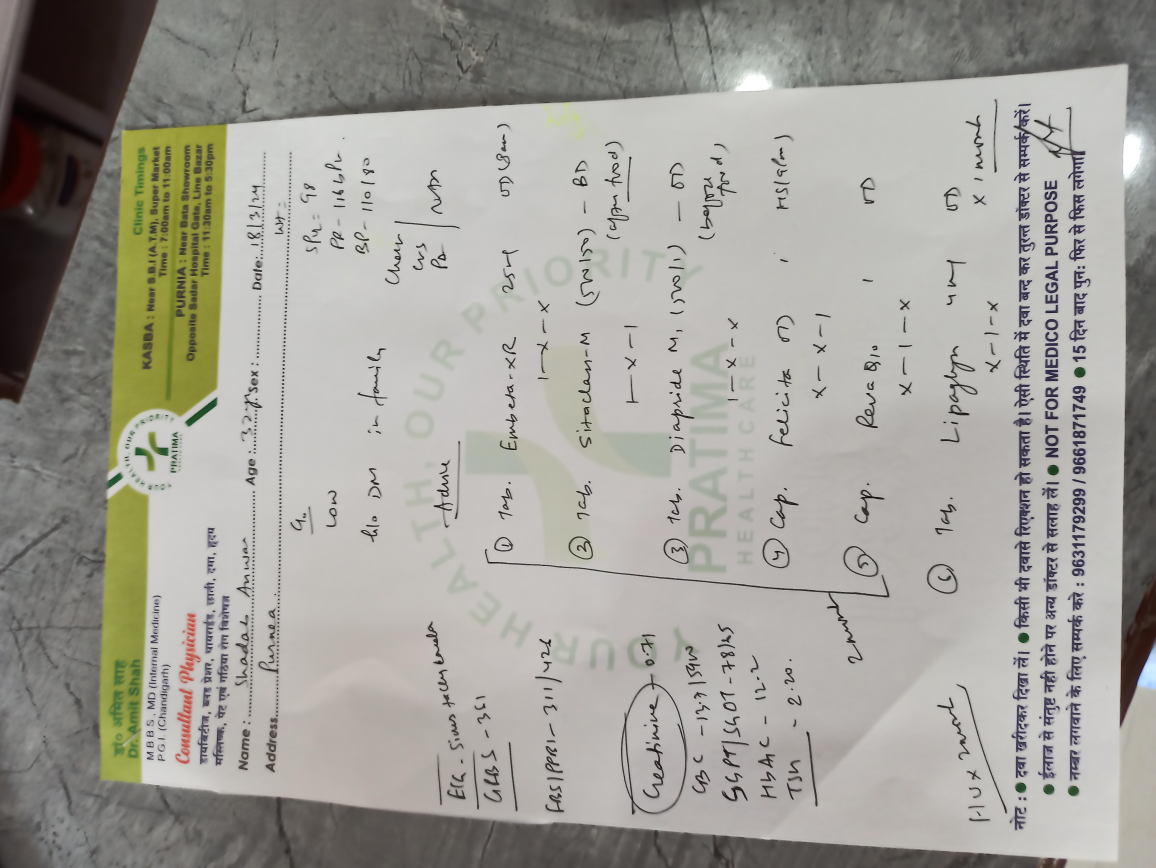 डा० अमित साह
Dr. Amit Shah
M B B S, MD (Internal Medicine)
P.G.I. (Chandigarh)
Consultant Physician
डायबिटीज, ब्लड प्रेशर, थायराईड, छाती, दमा, हृदय
मस्तिष्क, पेट एवं गठिया रोग विशेषज्ञ
YOUR HEALTH, OUR PRIORITY
PRATIMA
Clinic Timings
KASBA : Near S.B.I (A.T.M), Super Market
Time : 7:00am to 11:00am
PURNIA : Near Bata Showroom
Opposite Sadar Hospital Gate, Line Bazar
Time : 11:30am to 5:30pm
Name : Shadab Anwar Age : 32 yrs Sex : Date: 18/3/24
Address Purnea Wt :
c/o
Low
h/o DM in family
SPO2 = 98
PR - 116
BP - 110/80
Chest
CVS
PA
NAD
ECG - Sinus tachycardia
GRBS - 351
FBS/PPBS - 311/426
Creatinine - 0.71
CBC - 13.7/5900
SGPT/SGOT - 78/45
HbA1C - 12.2
TSH - 2.20.
Advise
① Tab. Embeta-XR 25mg OD (8am)
1-x-x
② Tab. (500/50) - BD
1-x-1 (after food)
③ Tab. Diapride M1 (500/1) - OD
1-x-x (before food)
④ Cap. Felicita OD 1 HS (9pm)
x-x-1
⑤ Cap. 1 OD
x-1-x
2 month
⑥ Tab. Lipaglyn 4mg OD
x-1-x x 1 month
YOUR HEALTH, OUR PRIORITY
PRATIMA
HEALTH CARE
नोट : ● दवा खरीदकर दिखा लें। ● किसी भी दवासे रिएक्शन हो सकता है। ऐसी स्थिति में दवा बन्द कर तुरन्त डॉक्टर से सम्पर्क करें।
● ईलाज से संतुष्ट नही होने पर अन्य डॉक्टर से सलाह लें। ● NOT FOR MEDICO LEGAL PURPOSE
● नम्बर लगवाने के लिए सम्पर्क करे : 9631179299 / 9661871749 ● 15 दिन बाद पुन: फिर से फिस लगेगा